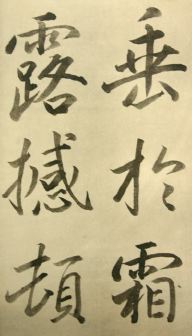 垂於霜
露撼頓